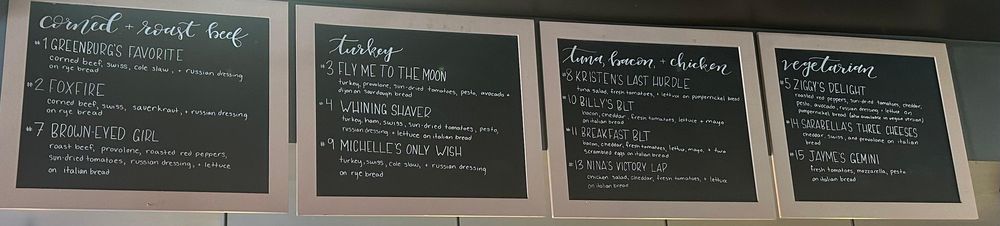 corned + roast beef
#1 GREENBURG'S FAVORITE
corned beef, swiss, cole slaw, + russian dressing
on rye bread
#2 FOXFIRE
corned beef, swiss, saverkraut, + russian dressing
on rye bread
#7 BROWN-EYED GIRL
roast beef, provolone, roasted red peppers,
sun-dried tomatoes, russian dressing, + lettuce
on italian bread
turkey
#3 FLY ME TO THE MOON
turkey, provolone, sun-dried tomatoes, pesto, avocado +
dijon on sourdough bread
#4 WHINING SHAVER
turkey, ham, swiss, sun-dried tomatoes, pesto,
russian dressing + lettuce on italian bread
#9 MICHELLE'S ONLY WISH
turkey, swiss, cole slaw, + russian dressing
on rye bread
tuna, bacon, + chicken
#8 KRISTEN'S LAST HURDLE
tuna salad, fresh tomatoes, + lettuce on pumpernickel bread
#10 BILLY'S BLT
bacon, cheddar, fresh tomatoes, lettuce + mayo
on italian bread
#11 BREAKFAST BLT
bacon, cheddar, fresh tomatoes, lettuce, mayo, + two
scrambled eggs on italian bread
#13 NINA'S VICTORY LAP
chicken salad, cheddar, fresh tomatoes, + lettuce
on italian bread
vegetarian
#5 ZIGGY'S DELIGHT
roasted red peppers, sun-dried tomatoes, cheddar,
pesto, avocado, russian dressing + lettuce on
pumpernickel bread (also available as vegan version)
#14 SARABELLA'S THREE CHEESES
cheddar, swiss, and provolone on italian
bread
#15 JAYME'S GEMINI
fresh tomatoes, mozzarella, pesto
on italian bread